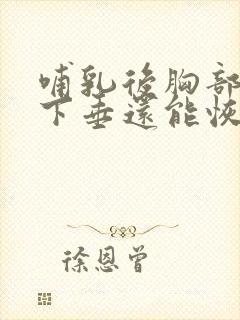 哺乳後胸部
下垂還能恢
徐恩曾